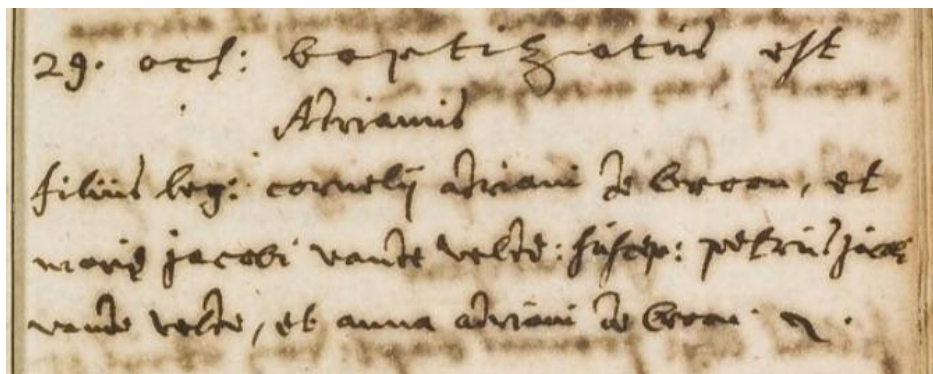 29. oct: baptizatus est
Adrianus
filius leg: cornelij adriani de Croon, et
marie jacobi vande velde: suscep: petrus jacobi
vande velde, et anna adriani de Croon.